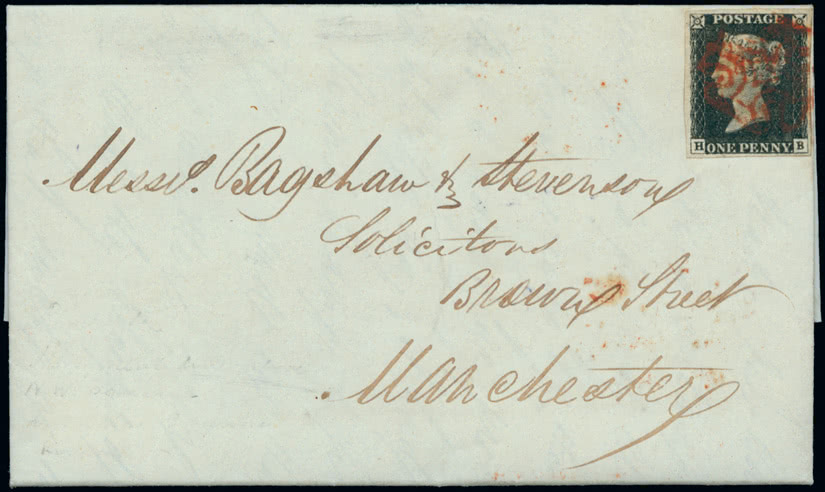 POSTAGE
H ONE PENNY B
Messrs. Bagshaw & Stevenson
Solicitors
Brown Street
Manchester